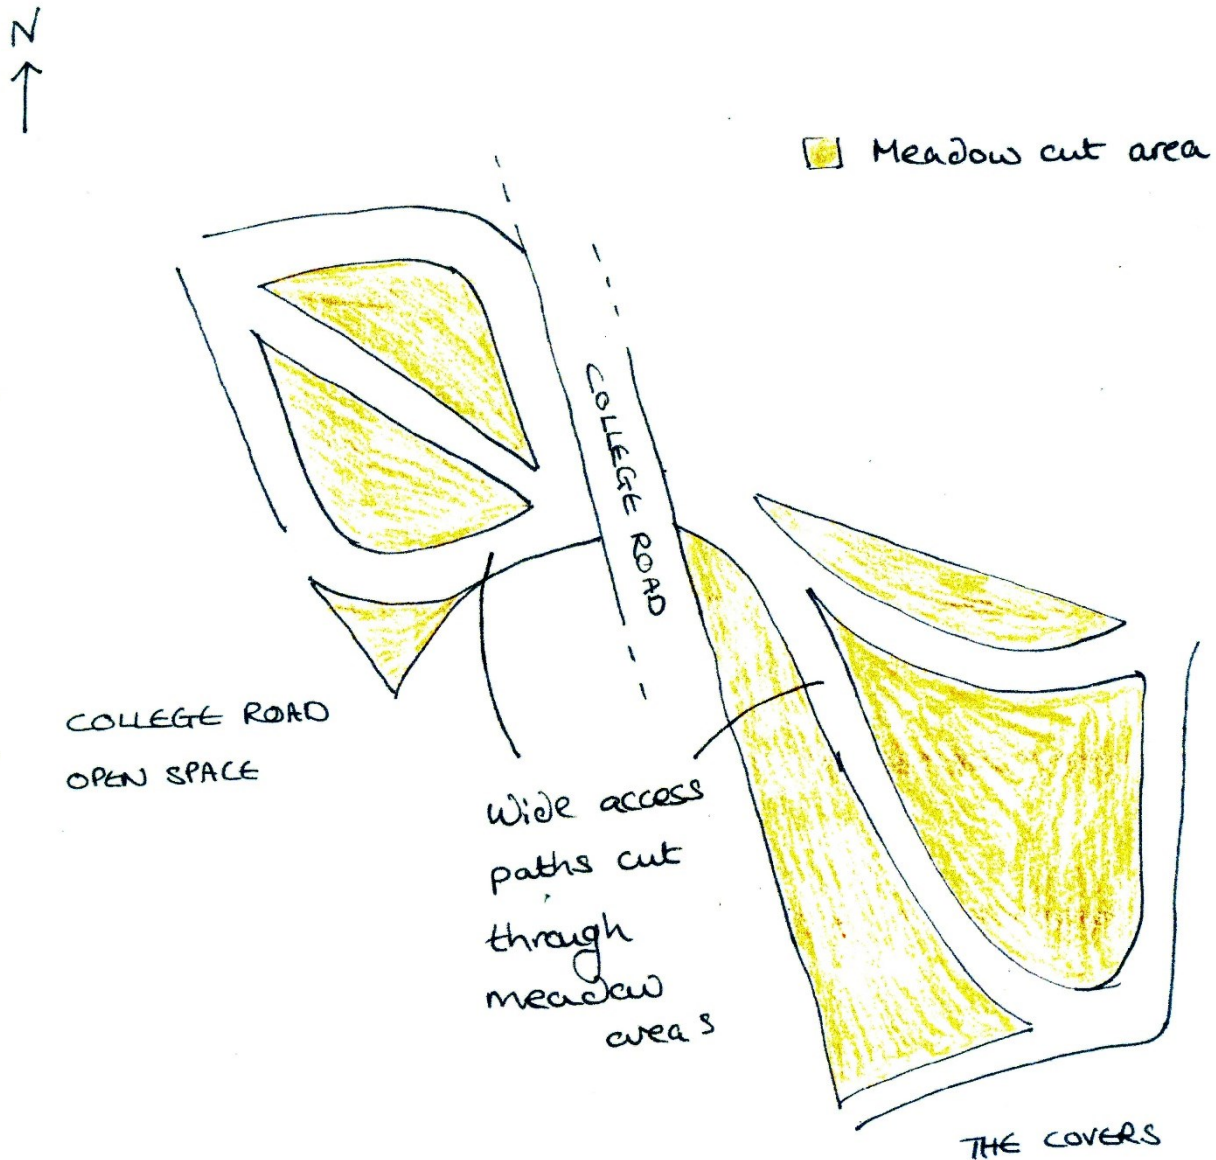 N
Meadow cut area
COLLEGE ROAD
COLLEGE ROAD
OPEN SPACE
Wide access
paths cut
through
meadow
areas
THE COVERS